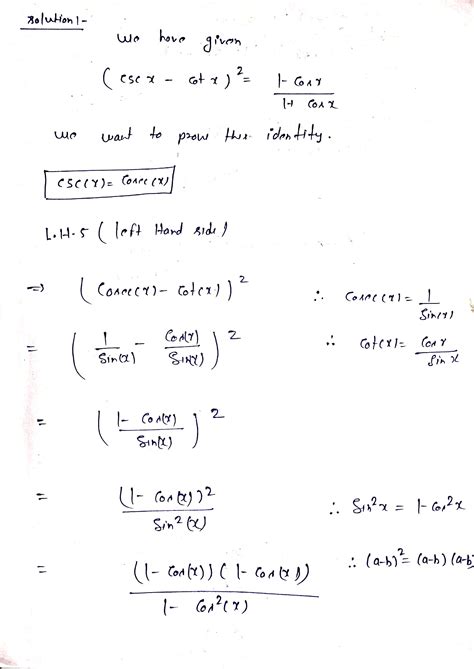 Solution:-
We have given
(csc x - cot x)² = (1 - cos x)/(1 + cos x)
we want to prove this identity.
csc(x) = cosec(x)
L.H.S (left Hand side)
⇒ (cosec(x) - cot(x))² ∴ cosec(x) = 1/Sin(x)
= (1/Sin(x) - Cos(x)/Sin(x))² ∴ cot(x) = Cos x/Sin x
= ((1 - Cos(x))/Sin(x))²
= (1 - Cos(x))²/Sin²(x) ∴ Sin²x = 1 - Cos²x
= ((1 - Cos(x))(1 - Cos(x)))/(1 - Cos²(x)) ∴ (a-b)² = (a-b)(a-b)